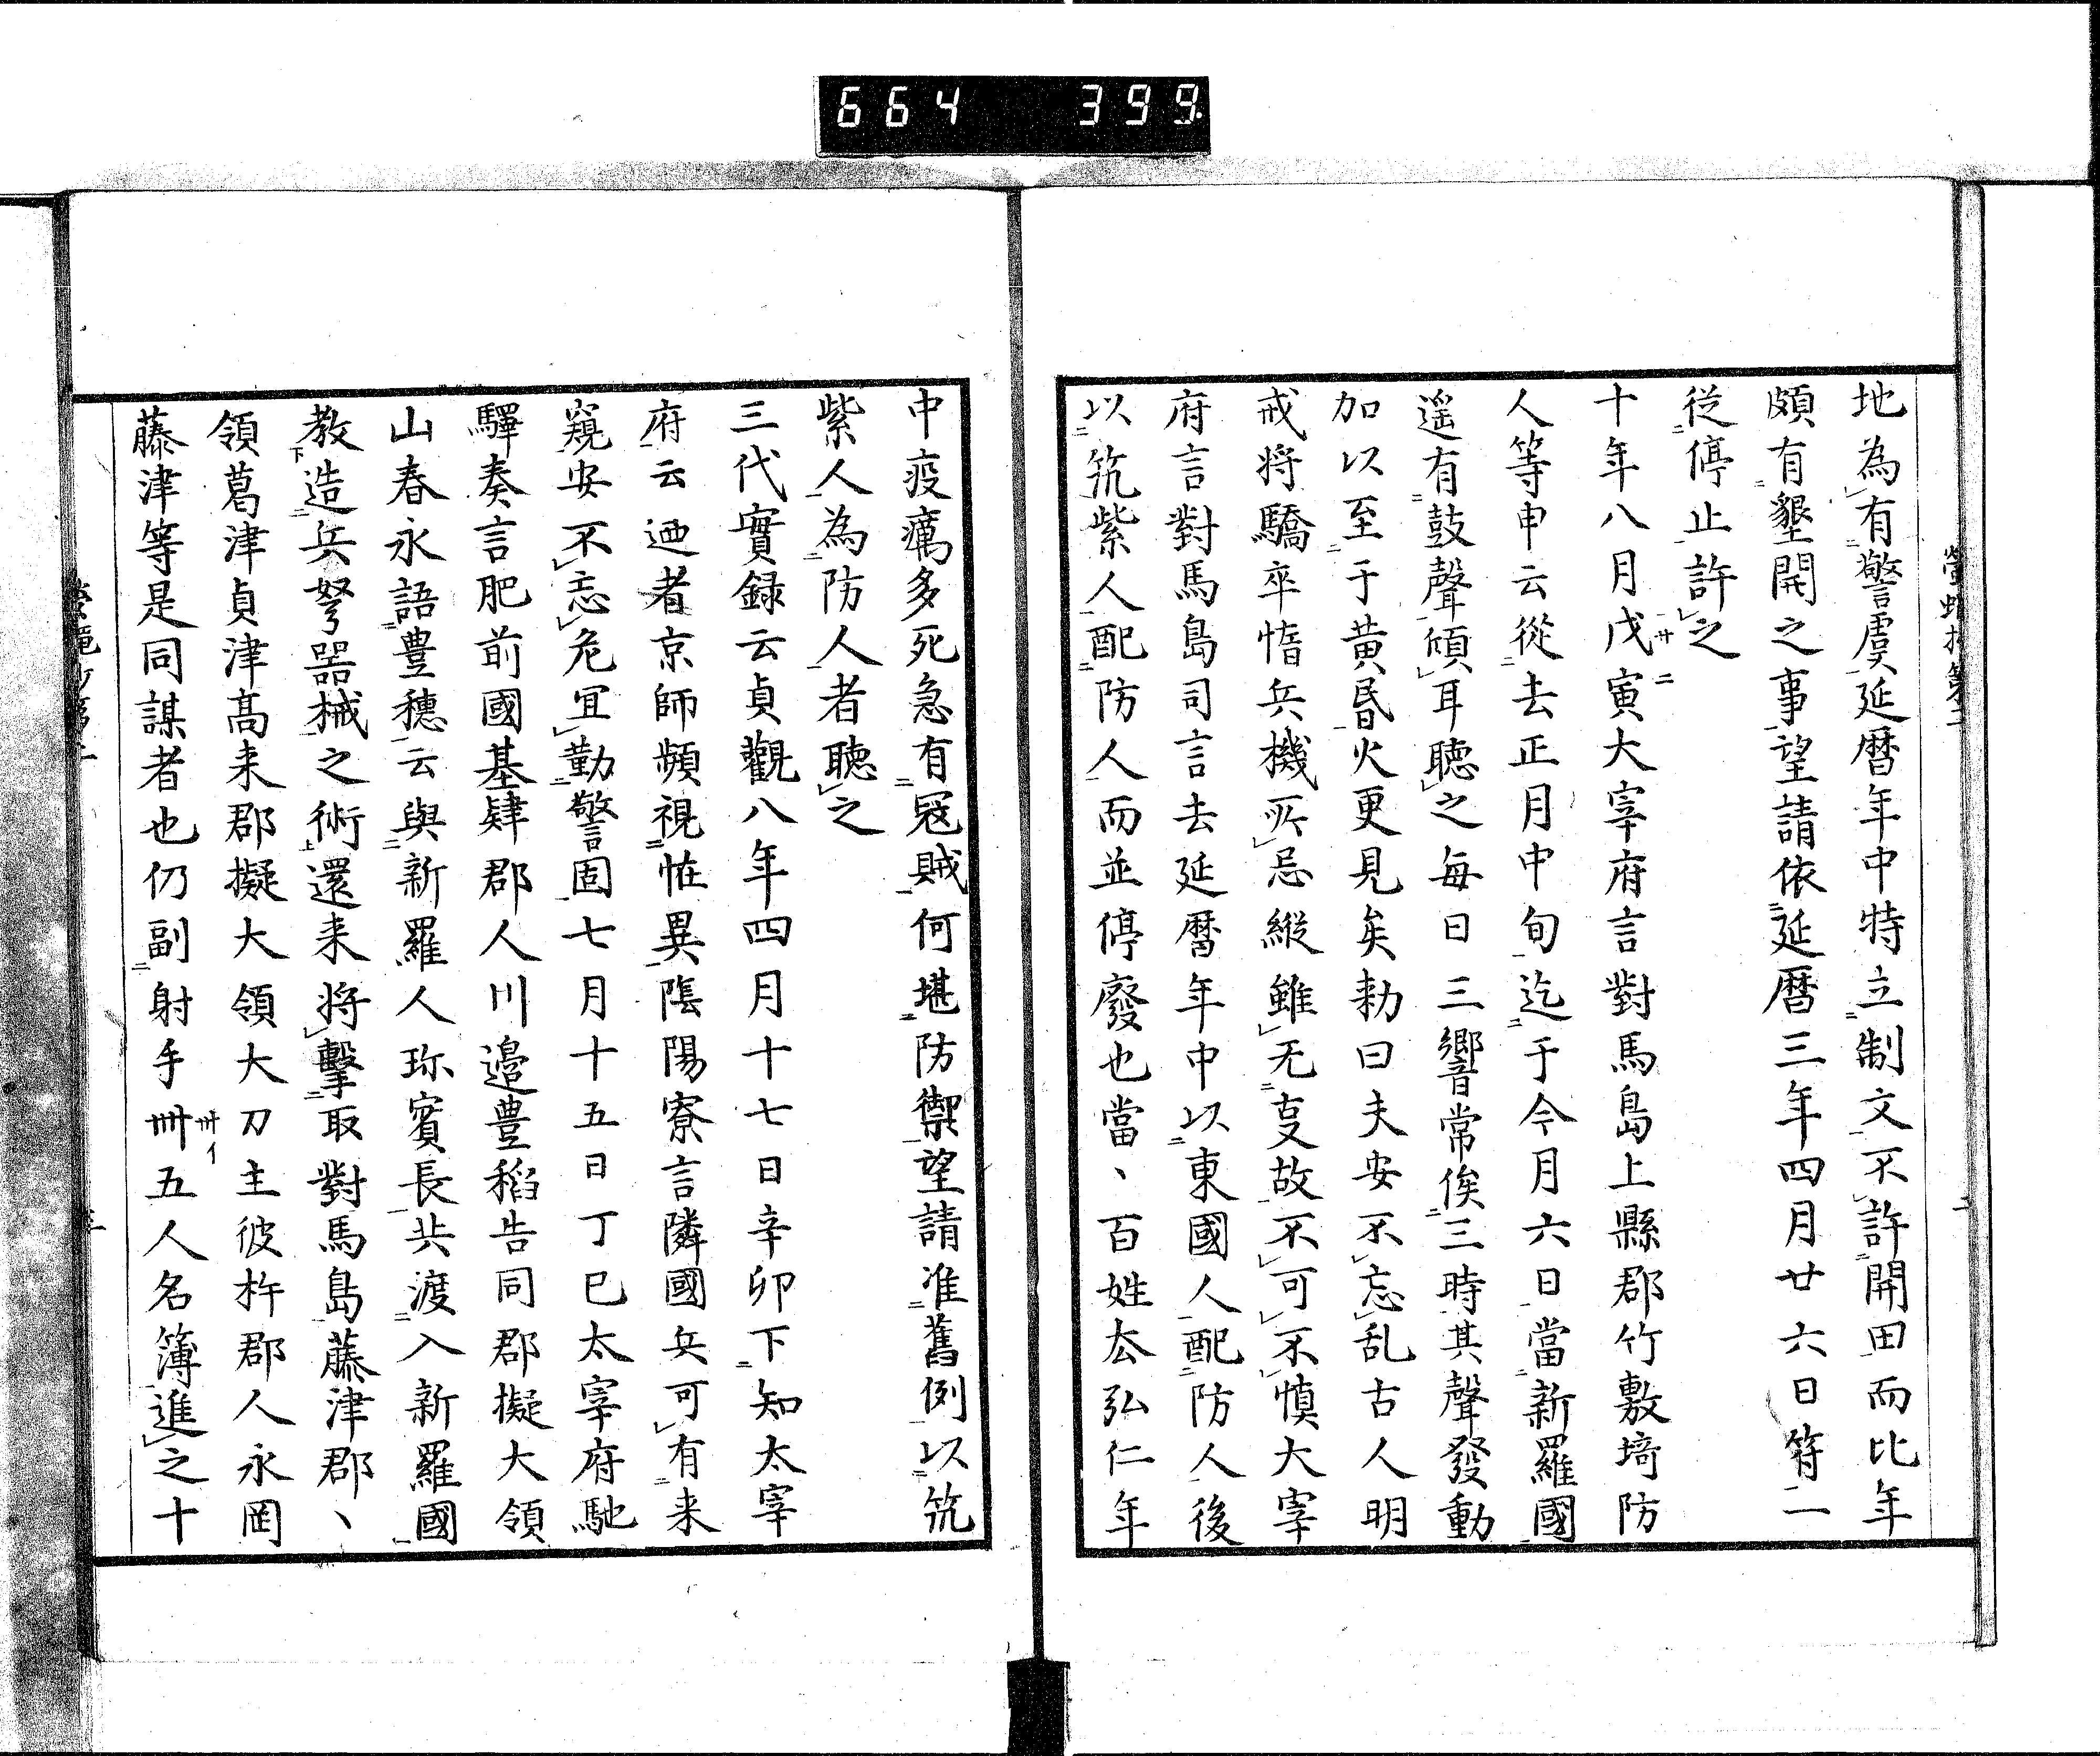 664 399
地為有警虞延暦年中特立制文不許開田而比年
頗有墾開之事望請依延暦三年四月廿六日符一
従停止許之
十年八月戊寅大宰府言對馬島上縣郡竹敷埼防
人等申云從去正月中旬迄于今月六日當新羅國
遥有鼓聲傾耳聴之毎日三響常俟三時其聲發動
加以至于黄昏火更見矣勅曰夫安不忘乱古人明
戒将驕卒惰兵機所忌縦雖无㕝故不可不慎大宰
府言對馬島司言去延暦年中以東國人配防人後
以筑紫人配防人而並停廢也當〻百姓去弘仁年
中疫癘多死急有寇賊何堪防禦望請准舊例以筑
紫人為防人者聴之
三代實録云貞觀八年四月十七日辛卯下知太宰
府云廼者京師頻視恠異陰陽寮言隣國兵可有来
窺安不忘危宜勤警固七月十五日丁巳太宰府馳
驛奏言肥前國基肄郡人川邉豊稻告同郡擬大領
山春永語豊穂云與新羅人珎賓長共渡入新羅國
教造兵弩噐械之術還来将擊取對馬島藤津郡〻
領葛津貞津髙来郡擬大領大刀主彼杵郡人永罡
藤津等是同謀者也仍副射手卌五人名簿進之十